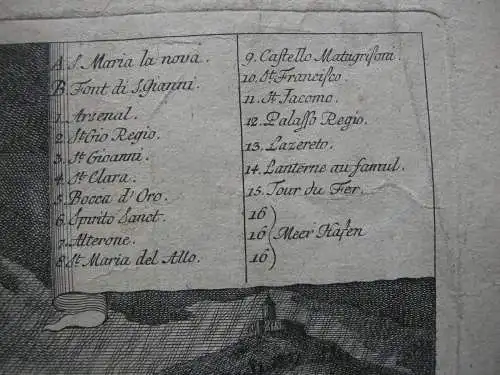 A. S. Maria la nova.
B. Font di S. Gianni.
1. Arsenal.
2. St Gio Regio.
3. St Gioanni.
4. St Clara.
5. Bocca d'Oro.
6. Spirito Sanct.
7. Alterone.
8. St Maria del Allo.
9. Castello Matagrifoni.
10. St Francisco.
11. St Jacomo.
12. Palasso Regio.
13. Lazereto.
14. Lanterne au famul.
15. Tour du Fer.
16)
16( Meer Hafen
16)